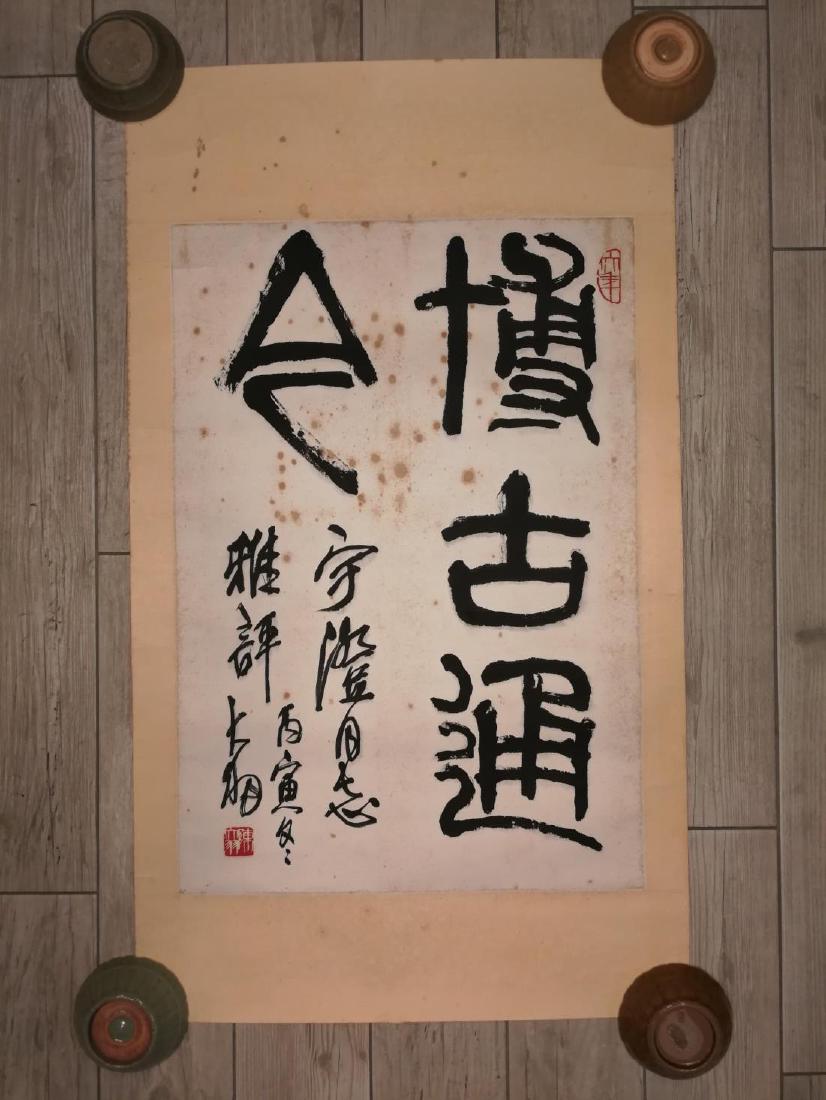 博古通
今
宇澄同志
雅評
丙寅冬
大羽